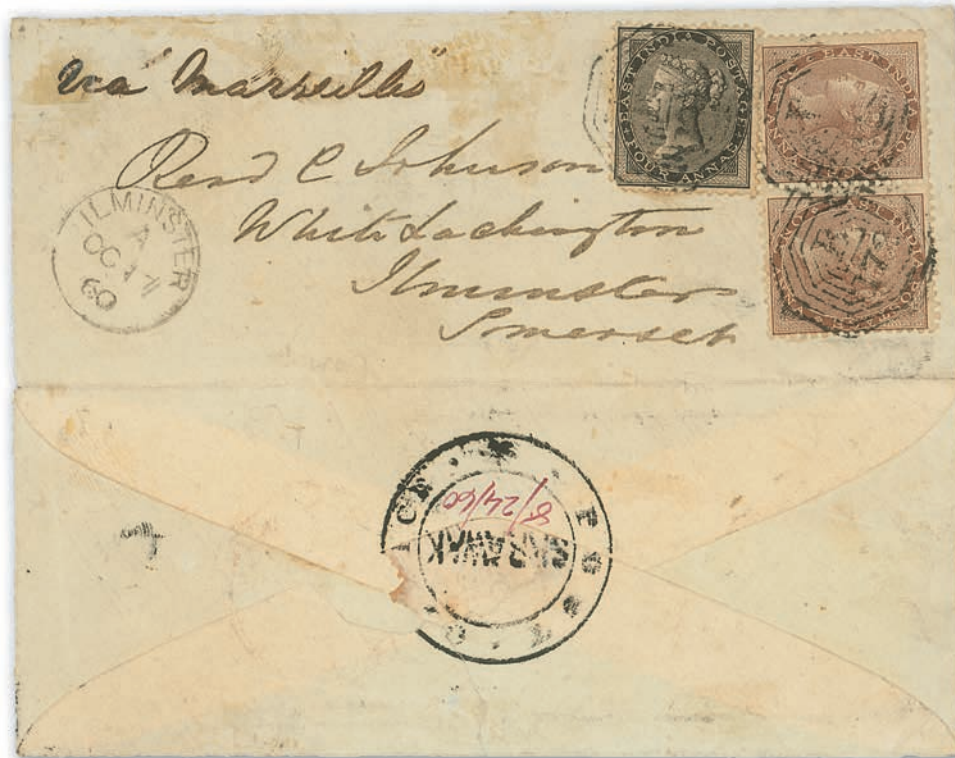 via "Marseilles"
Revd C Johnson
White Lackington
Ilminster
Somerset
ILMINSTER
A
OC 17
60
EAST INDIA POSTAGE
FOUR ANNAS
EAST INDIA
EAST INDIA
B
172
POST OFFICE
SARAWAK
8/24/60